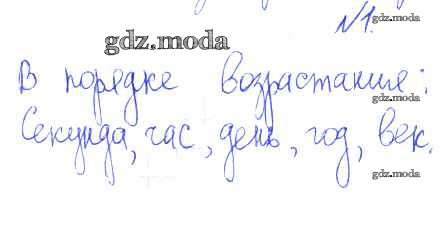 №1.
gdz.moda
gdz.moda
В порядке возрастание:
gdz.moda
Секунда, час, день, год, век.
gdz.moda